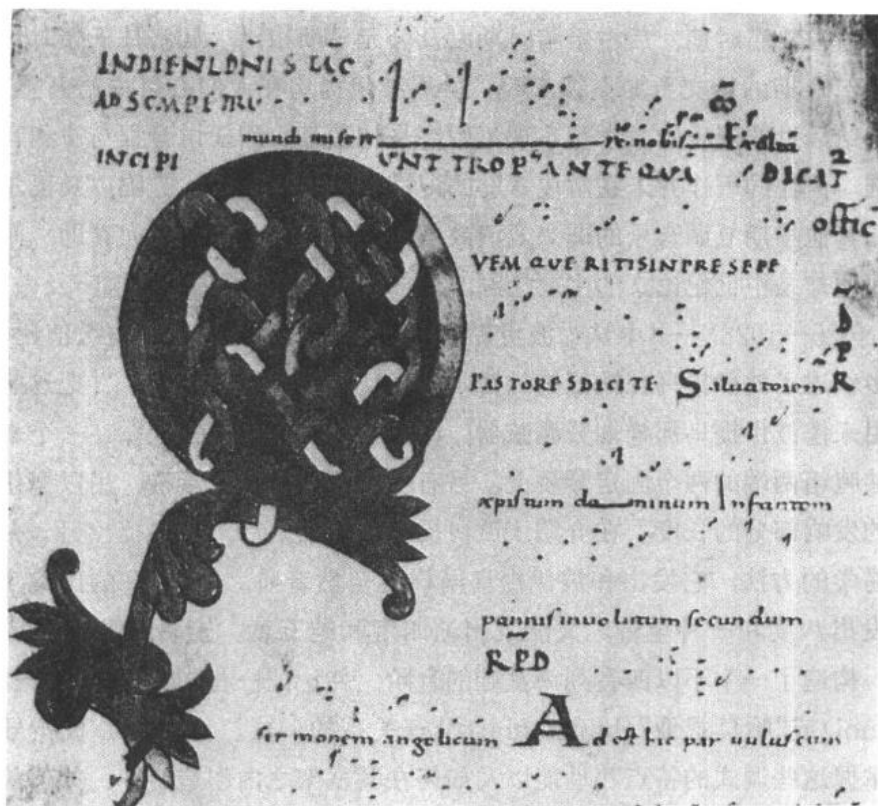 INDIE NL DNI S
AD SCM PETRU
mundi miserere nobis
INCIPIUNT TROP ANTEQUA DICAT
offic
VEM QUERITIS IN PRESEPE
D
P
PASTORES DICITE Saluatorem R
xpistum dominum Infantem
pannis inuolutum secundum
RPD
sermonem angelicum Adest hic paruulus cum